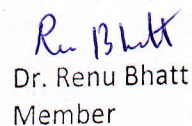 Ren Bhatt
Dr. Renu Bhatt
Member